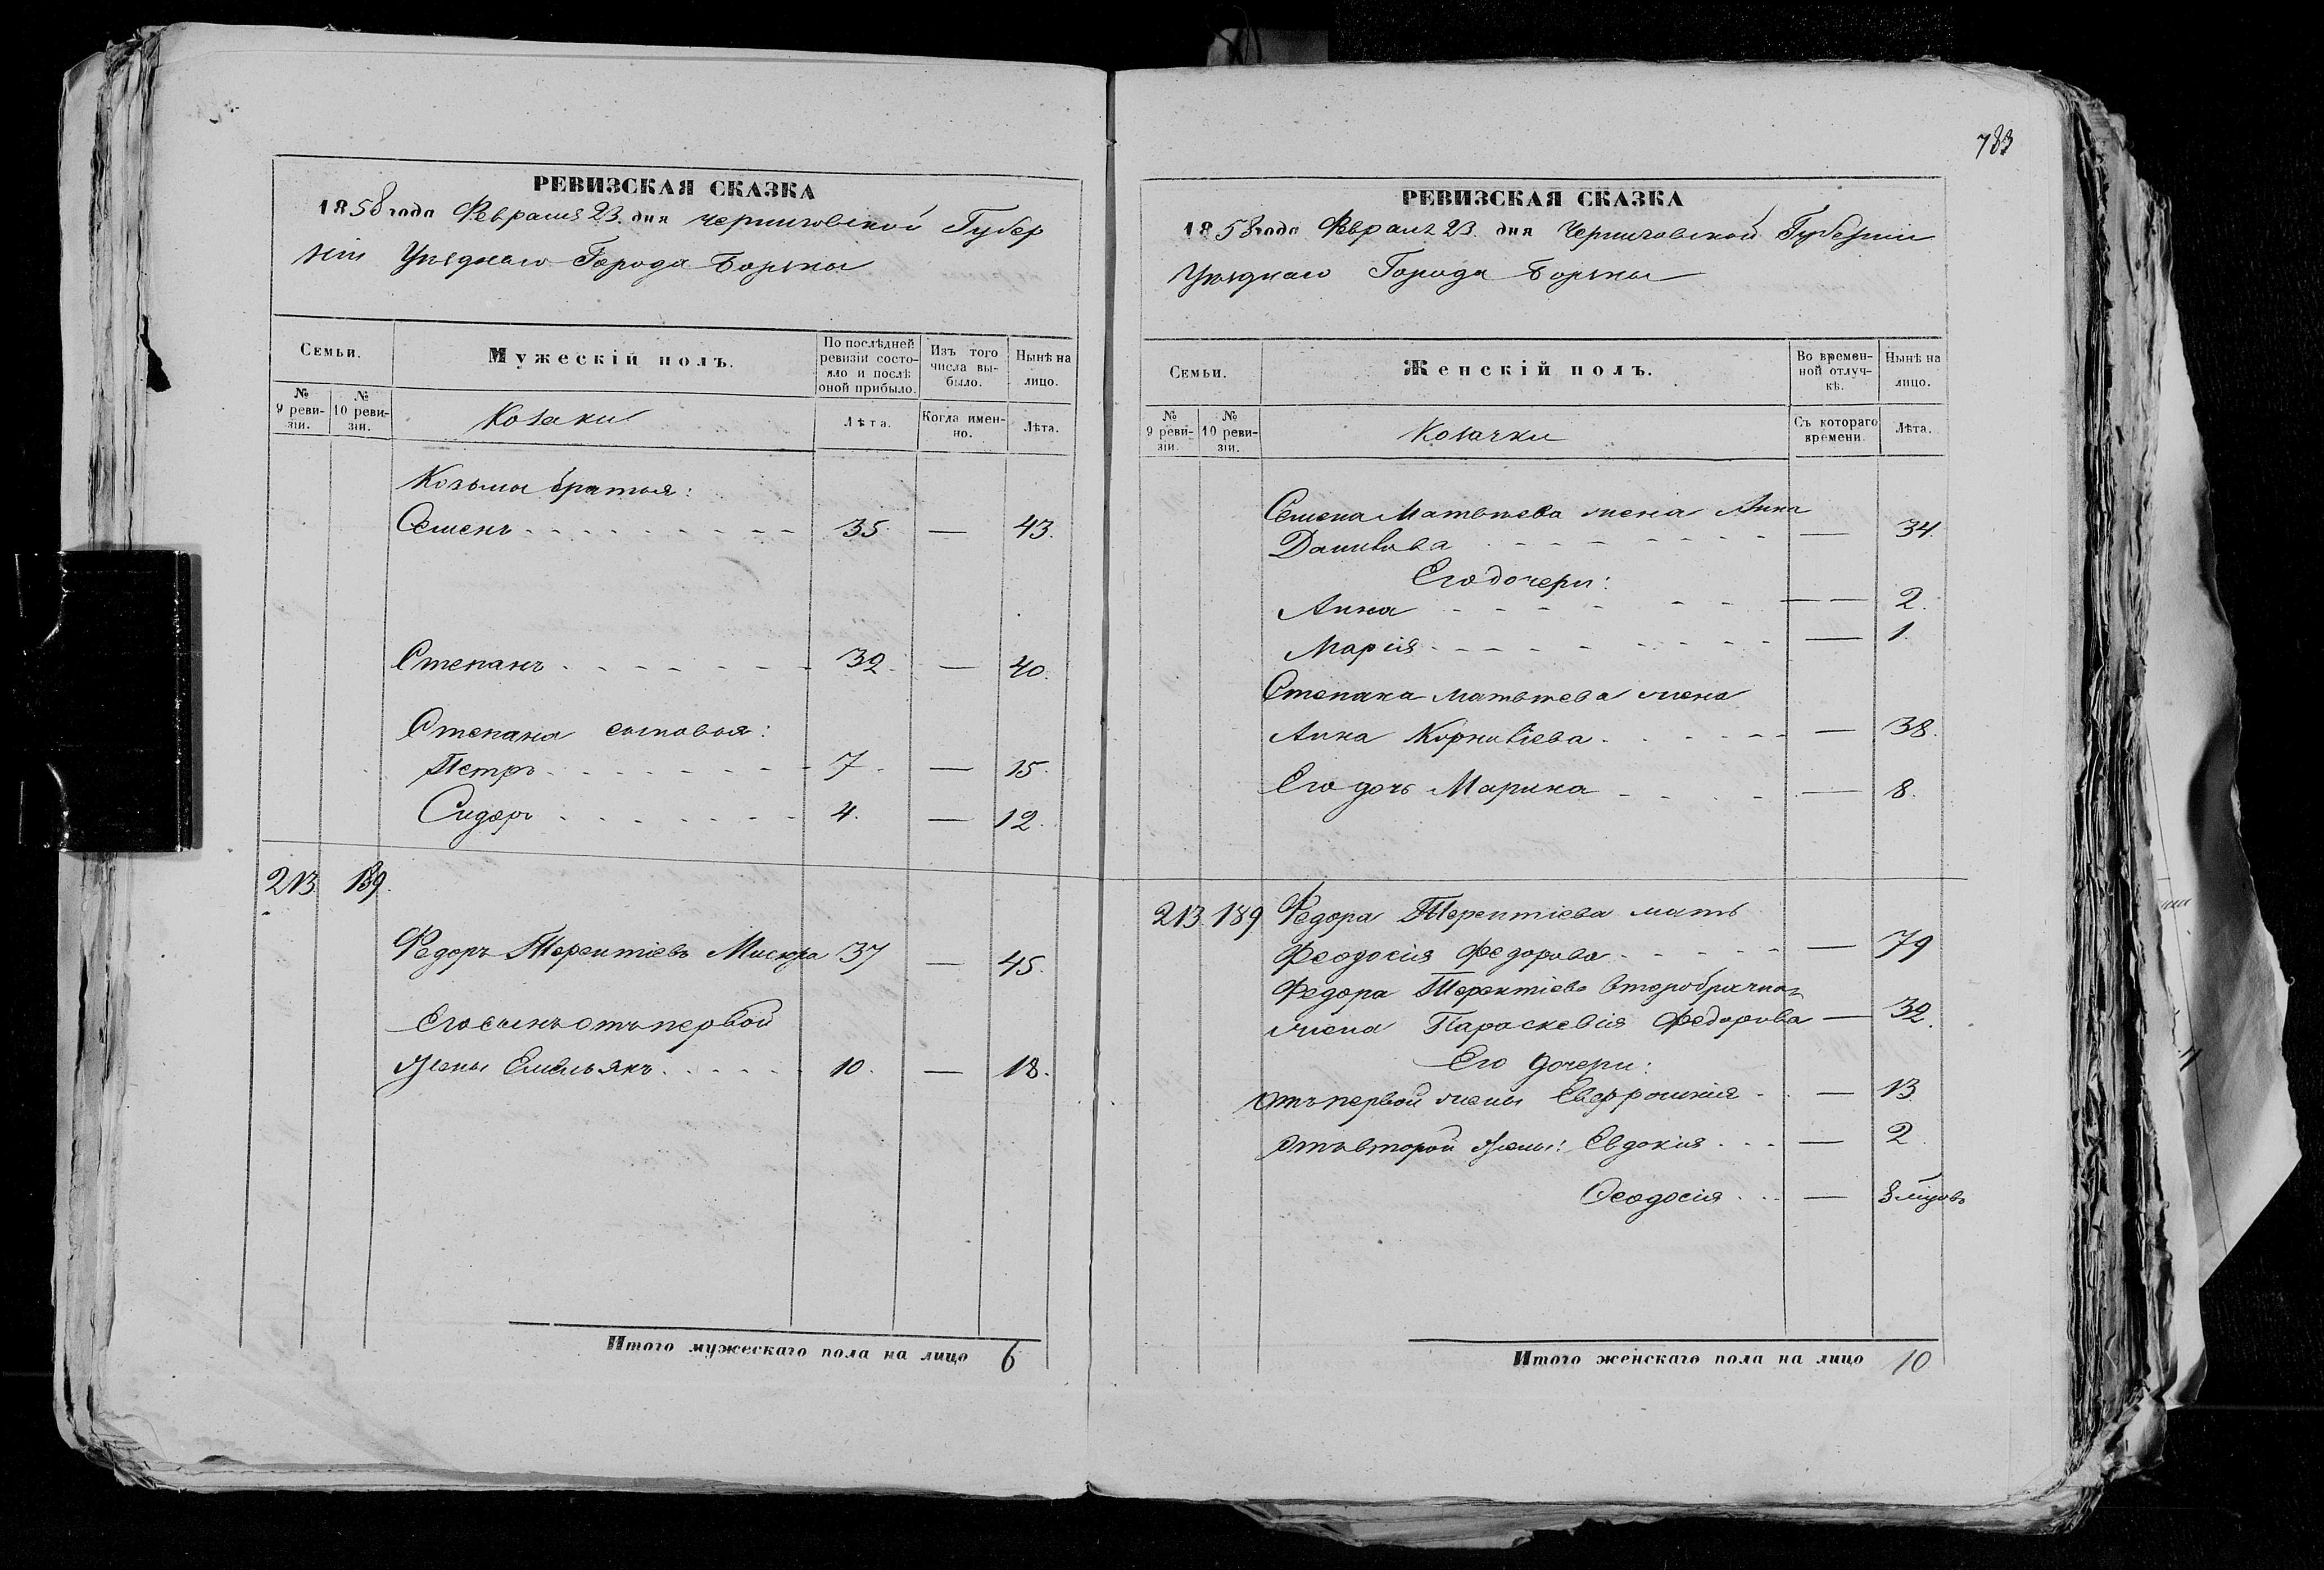 РЕВИЗСКАЯ СКАЗКА
1858 года Февраля 23. дня Черниговской Губер
ніи Уѣзднаго Города Борзны
Семьи.
Мужескій полъ.
По послѣдней ревизіи состояло и послѣ оной прибыло.
Изъ того числа выбыло.
Нынѣ на лицо.
№ 9 ревизіи.
№ 10 ревизіи.
Козаки
Лѣта.
Когда именно.
Лѣта.
Козьмы братья:
Семенъ 35. — 43.
Степанъ 32. — 40.
Степана сыновья:
Петръ 7 — 15.
Сидоръ 4. — 12.
213 189.
Федоръ Терентіевъ Мисюра 37 — 45.
Его сынъ отъ первой
жены Емельянъ 10. — 18.
Итого мужескаго пола на лицо 6
783
РЕВИЗСКАЯ СКАЗКА
1858 года Февраля 23. дня Черниговской Губерніи
Уѣзднаго Города Борзны
Семьи.
Женскій полъ.
Во временной отлучкѣ.
Нынѣ на лицо.
№ 9 ревизіи.
№ 10 ревизіи.
Козачки
Съ котораго времени.
Лѣта.
Семена Матвѣева жена Анна
Данилова — 34.
Его дочери:
Анна — 2.
Марія — 1.
Степана Матвѣева жена
Анна Корніева — 38.
Его дочь Марина — 8.
213. 189 Федора Терентіева мать
Феодосія Федорова — 79
Федора Терентіева второбрачная
жена Параскевія Федорова — 32.
Его дочери:
отъ первой жены Евфросинія — 13
отъ второй жены: Евдокія — 2
Феодосія — 8 мѣсяцовъ
Итого женскаго пола на лицо 10